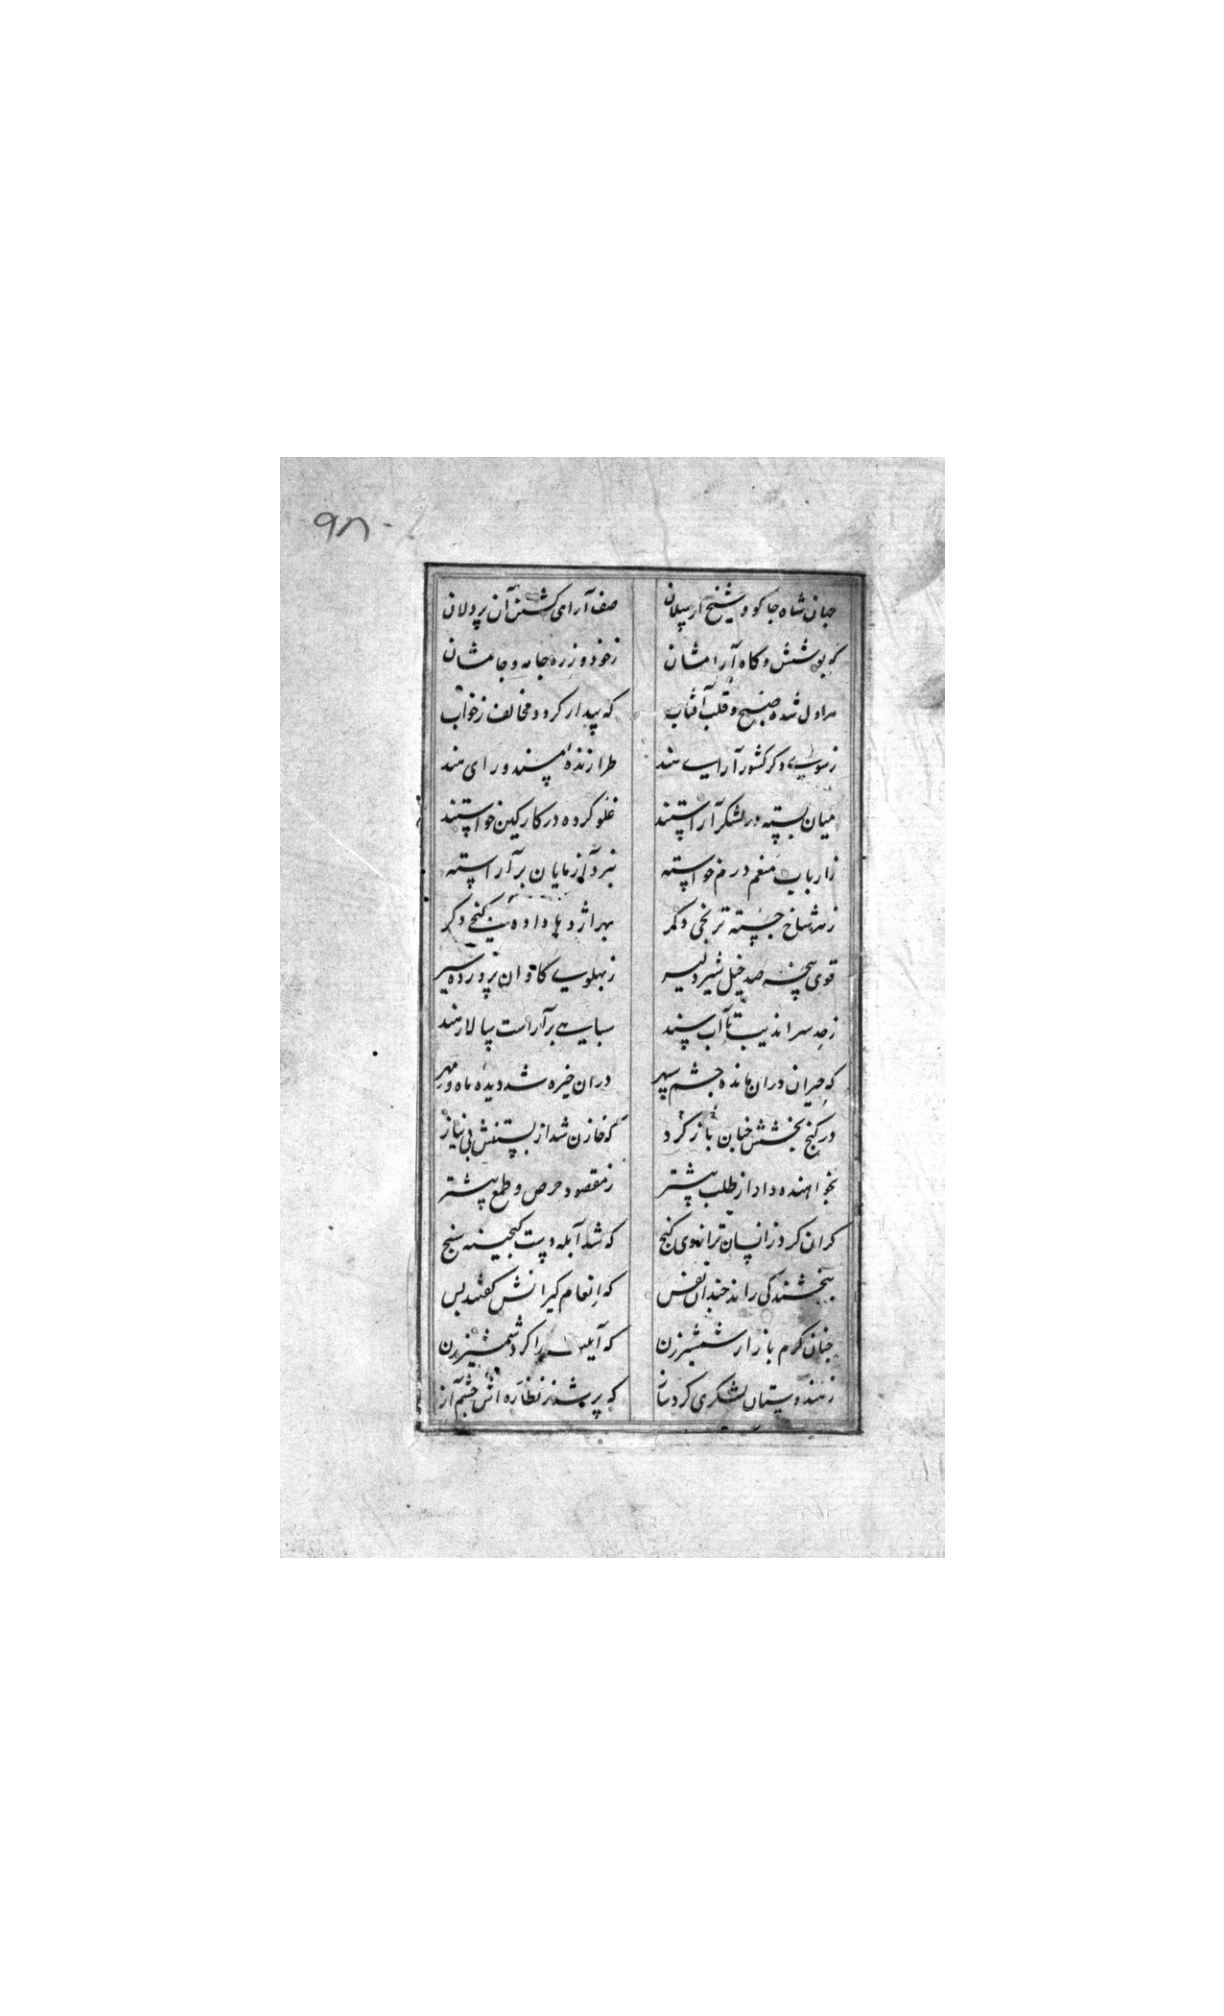 ۹۸۰
جهان شاه جاکو و شیخ ارسلان صف آرای گشتن آن پردلان
که پوشش و کاه آرامشان ز خود و زره جامه و جامشان
هراول شده صبح و قلب آفتاب که بیدار کرد و مخالف ز خواب
ز سوی دکر کشور آرای هند طرازندهٔ مسند و رای هند
میان بسته در لشکر آراستند غلو کرده در کار کین خواستند
ز ارباب منعم درم خواسته نبرد آزمایان برآراسته
ز هر شاخ جسته ترنجی دکر بهر اژدها داده کنجی دکر
قوی پنجه صد خیل شیر دلیر ز پهلوی کاوان پرورده سیر
ز حد سراندیب تا آب سند سپاهی برآراست سالار هند
که حیران در آن مانده چشم سپهر در آن خیره شد دیده ماه و مهر
در کنج بخشش چنان باز کرد که خازن شد از بستنش بی نیاز
بخواهنده داد از طلب پیشتر ز مقصود حرص و طمع بیشتر
کران کرد زانسان ترازوی کنج که شد آبله دست کنجینه سنج
ببخشندکی راند چندان نفس که انعام کیرانش کفتند بس
چنان کرم بازار شمشیر زن که را کرد شمشیرزن
ز هندوستان لشکری کرد ساز که پر شد ز نظاره اش چشم آز